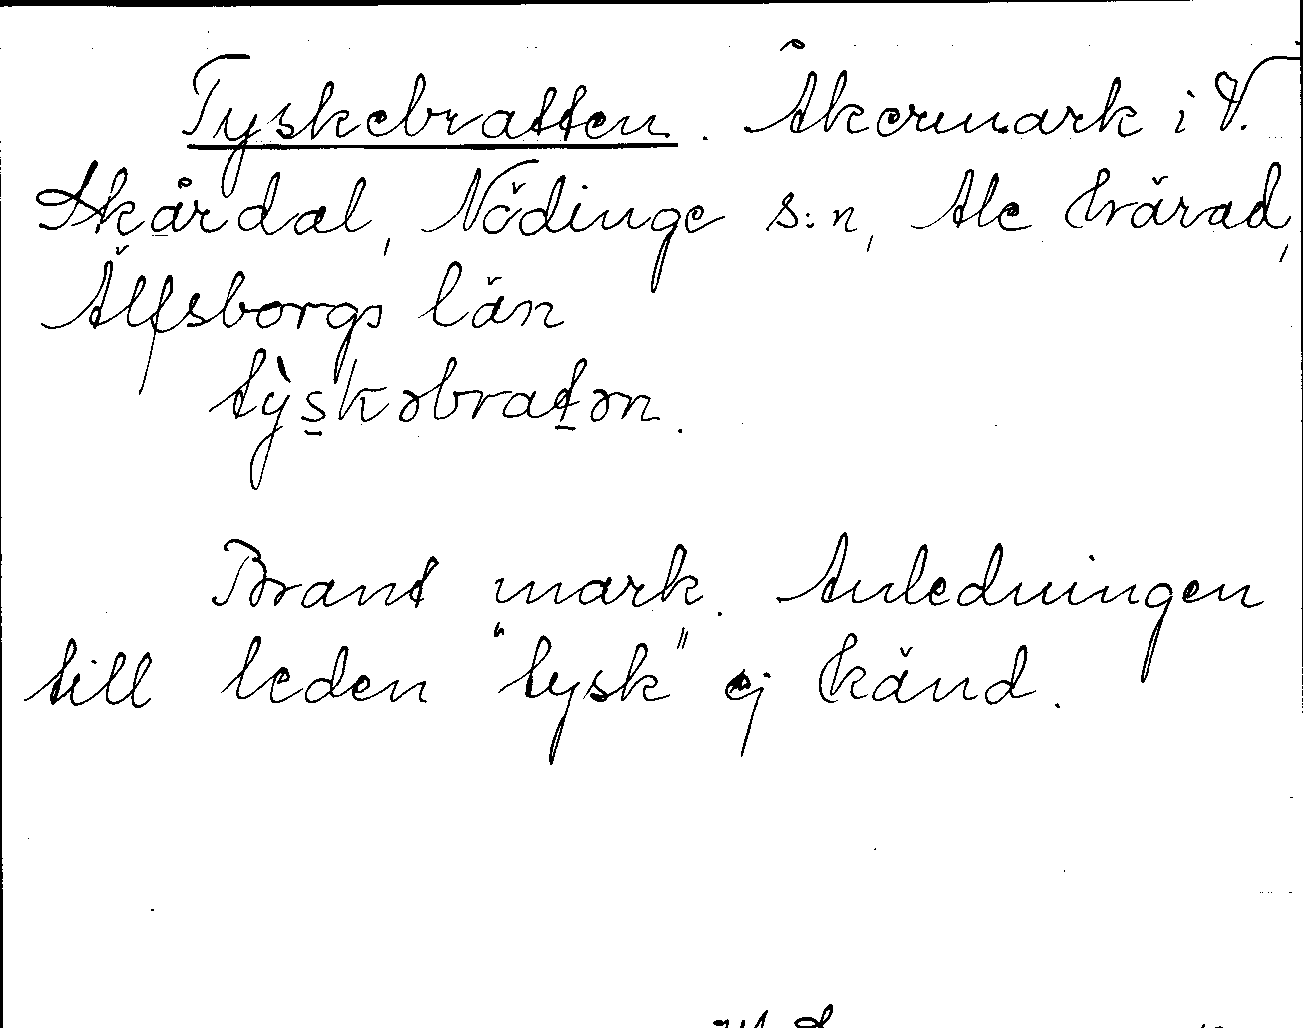 Tyskebratten. Åkermark i V.
Skårdal, Nödinge s:n, Ale härad,
Älfsborgs län
tỳs̲kəbrat̲ən.
Brant mark. Anledningen
till leden "tysk" ej känd.